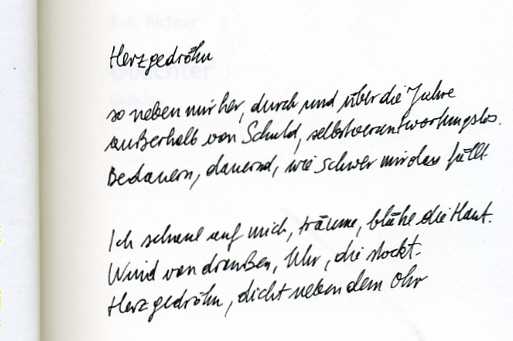 Herzgedröhn
so neben mir her, durch und über die Jahre
außerhalb von Schuld, selbstverantwortungslos.
Bedauern, dauernd, wie schwer mir das fällt.
Ich schaue auf mich, träume, blähe die Haut.
Wind von draußen, Uhr, die stockt.
Herzgedröhn, dicht neben dem Ohr